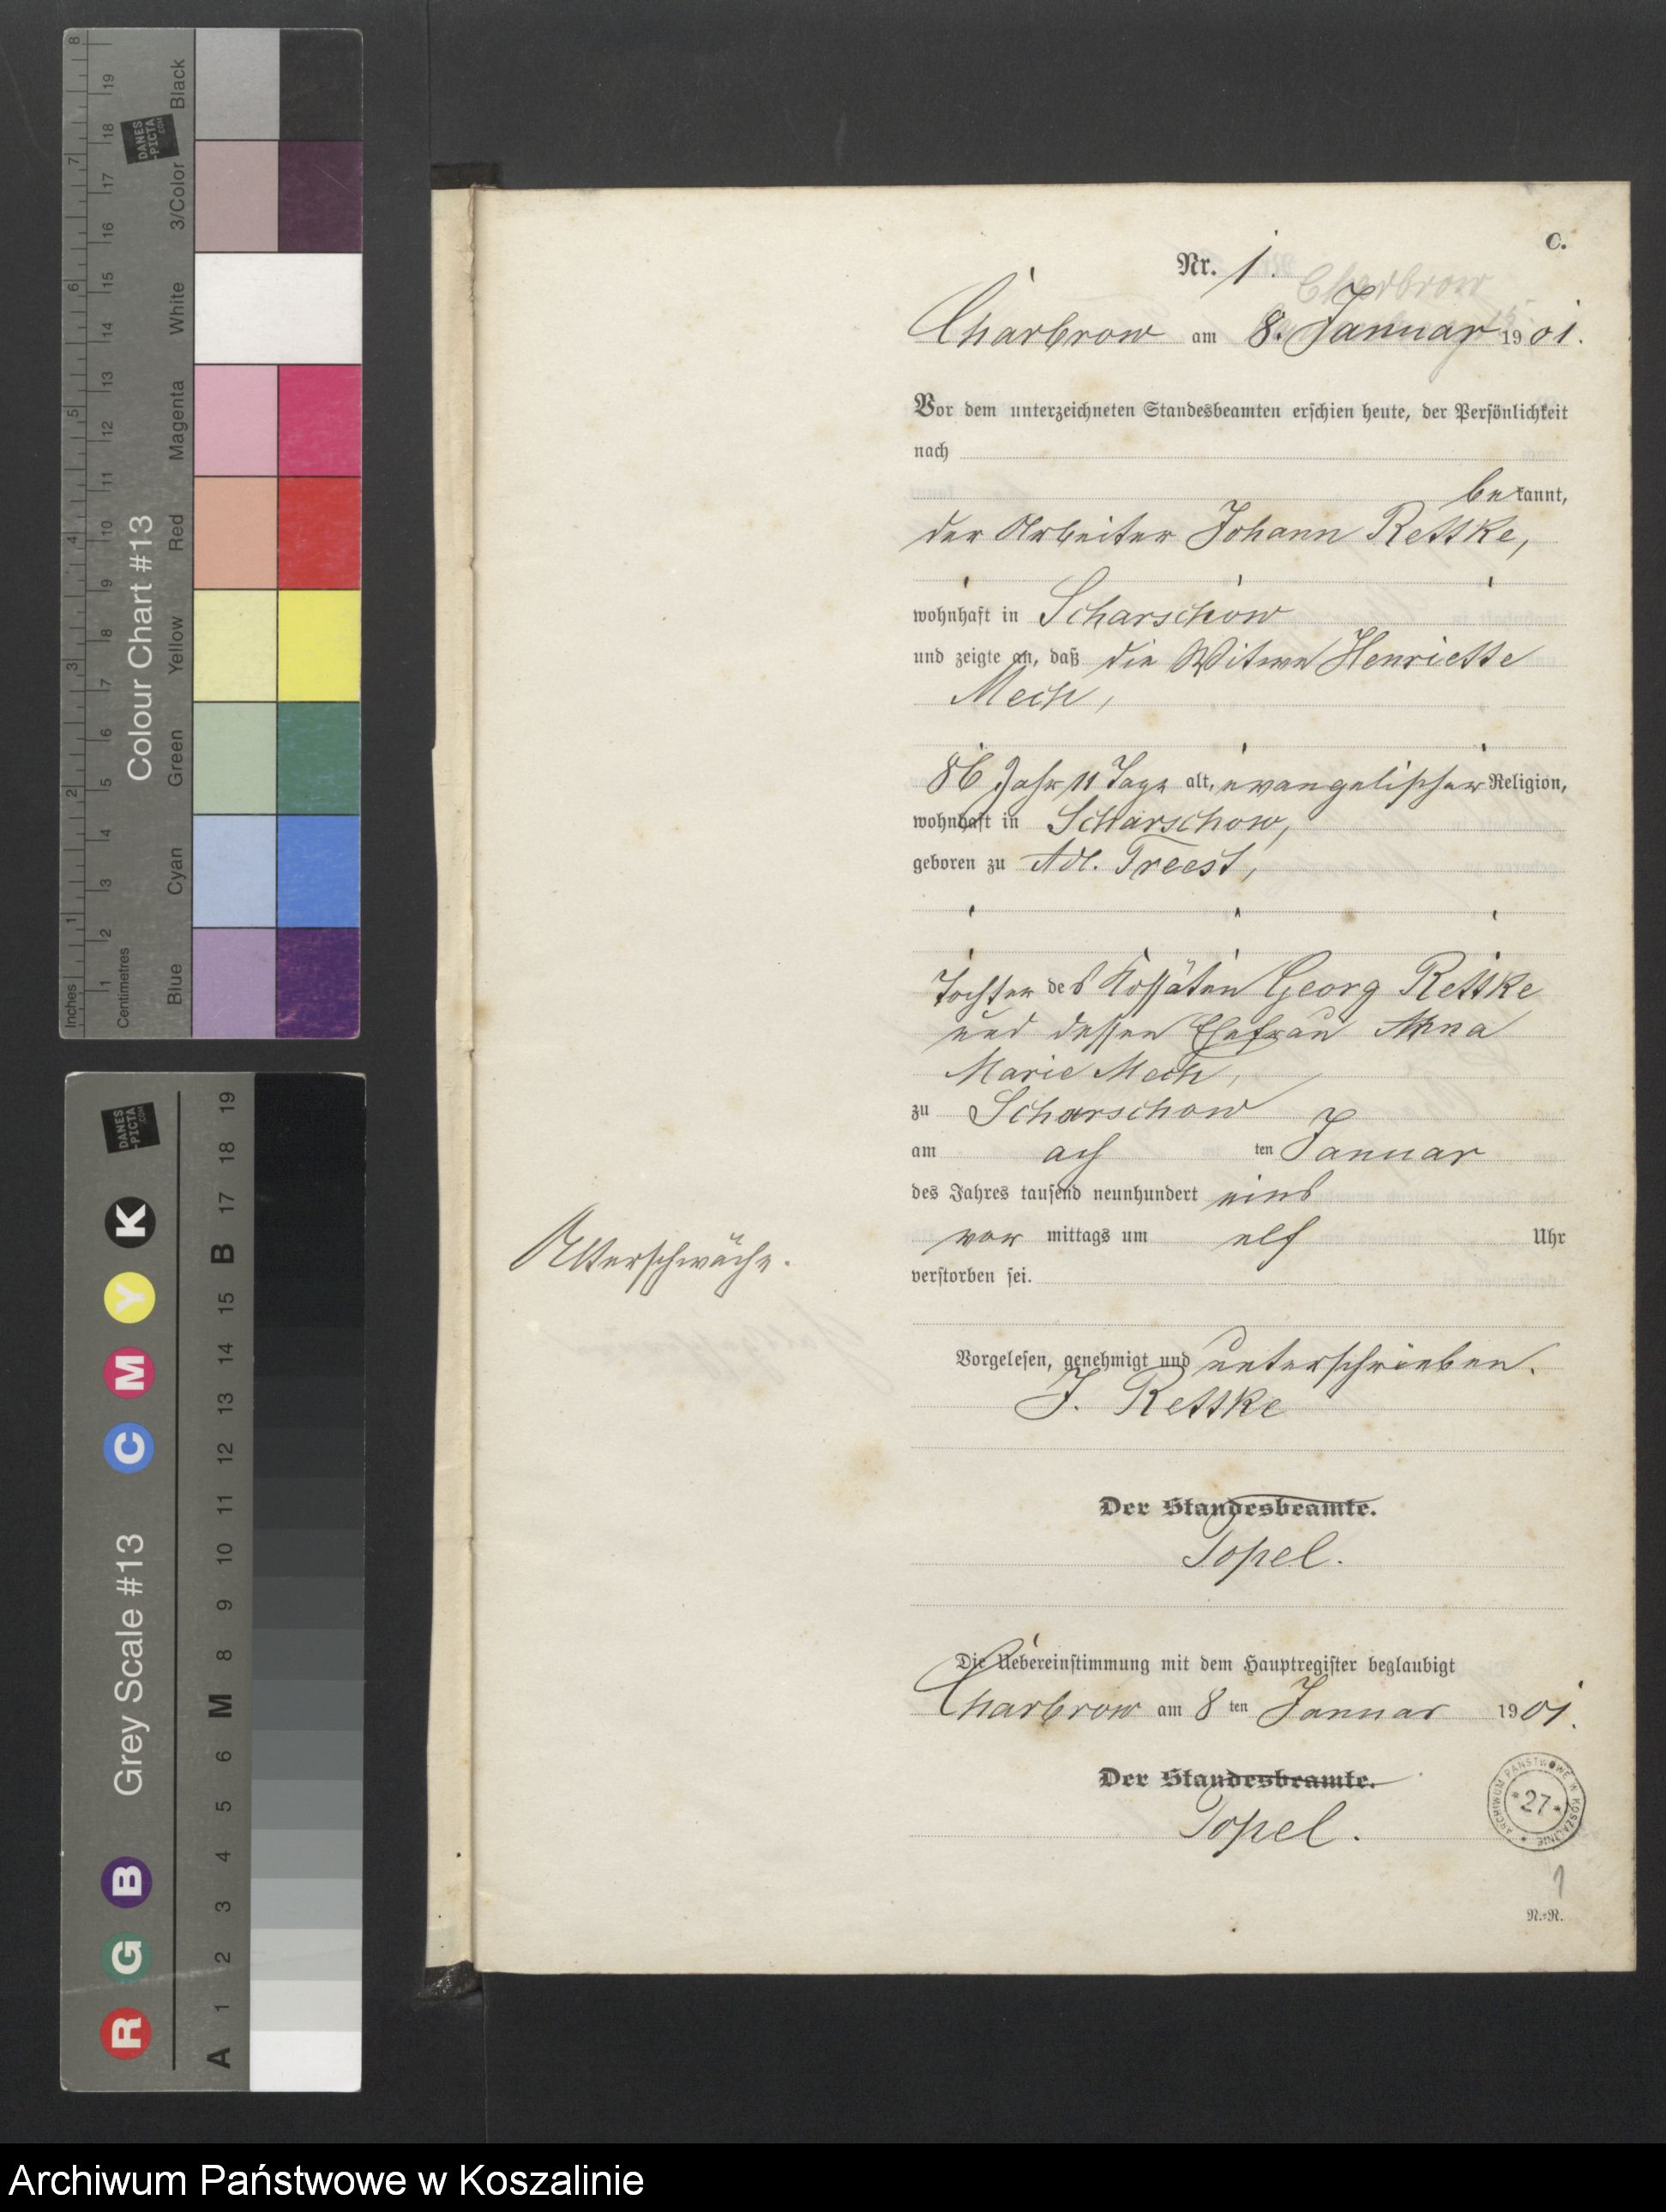 C.
Nr. 1.
Charbrow
Charbrow am 8. Januar 1901.
Vor dem unterzeichneten Standesbeamten erschien heute, der Persönlichkeit
nach
bekannt,
der Arbeiter Johann Rettke,
wohnhaft in Scharschow
und zeigte an, daß die Witwe Henriette
Mech,
86 Jahr 11 Tage alt, evangelischer Religion,
wohnhaft in Scharschow,
geboren zu Adl. Freest,
Tochter des Kossäten Georg Rettke
und dessen Ehefrau Anna
Marie Mech,
zu Scharschow
am ach ten Januar
des Jahres tausend neunhundert eins
vor mittags um elf Uhr
verstorben sei.
Alterschwäche.
Vorgelesen, genehmigt und unterschrieben.
J. Rettke
Der Standesbeamte.
Topel.
Die Uebereinstimmung mit dem Hauptregister beglaubigt
Charbrow am 8 ten Januar 1901.
Der Standesbeamte.
Topel.
ARCHIWUM PAŃSTWOWE W KOSZALINIE
* 27 *
1
N.=N.
Inches 1 2 3 4 5 6 7 8
Centimetres 1 2 3 4 5 6 7 8 9 10 11 12 13 14 15 16 17 18 19
Colour Chart #13
DANES
-PICTA
.COM
Blue Cyan Green Yellow Red Magenta White 3/Color Black
Grey Scale #13
DANES
-PICTA
.COM
R G B C M Y K
A 1 2 3 4 5 6 M 8 9 10 11 12 13 14 15 B 17 18 19
Archiwum Państwowe w Koszalinie